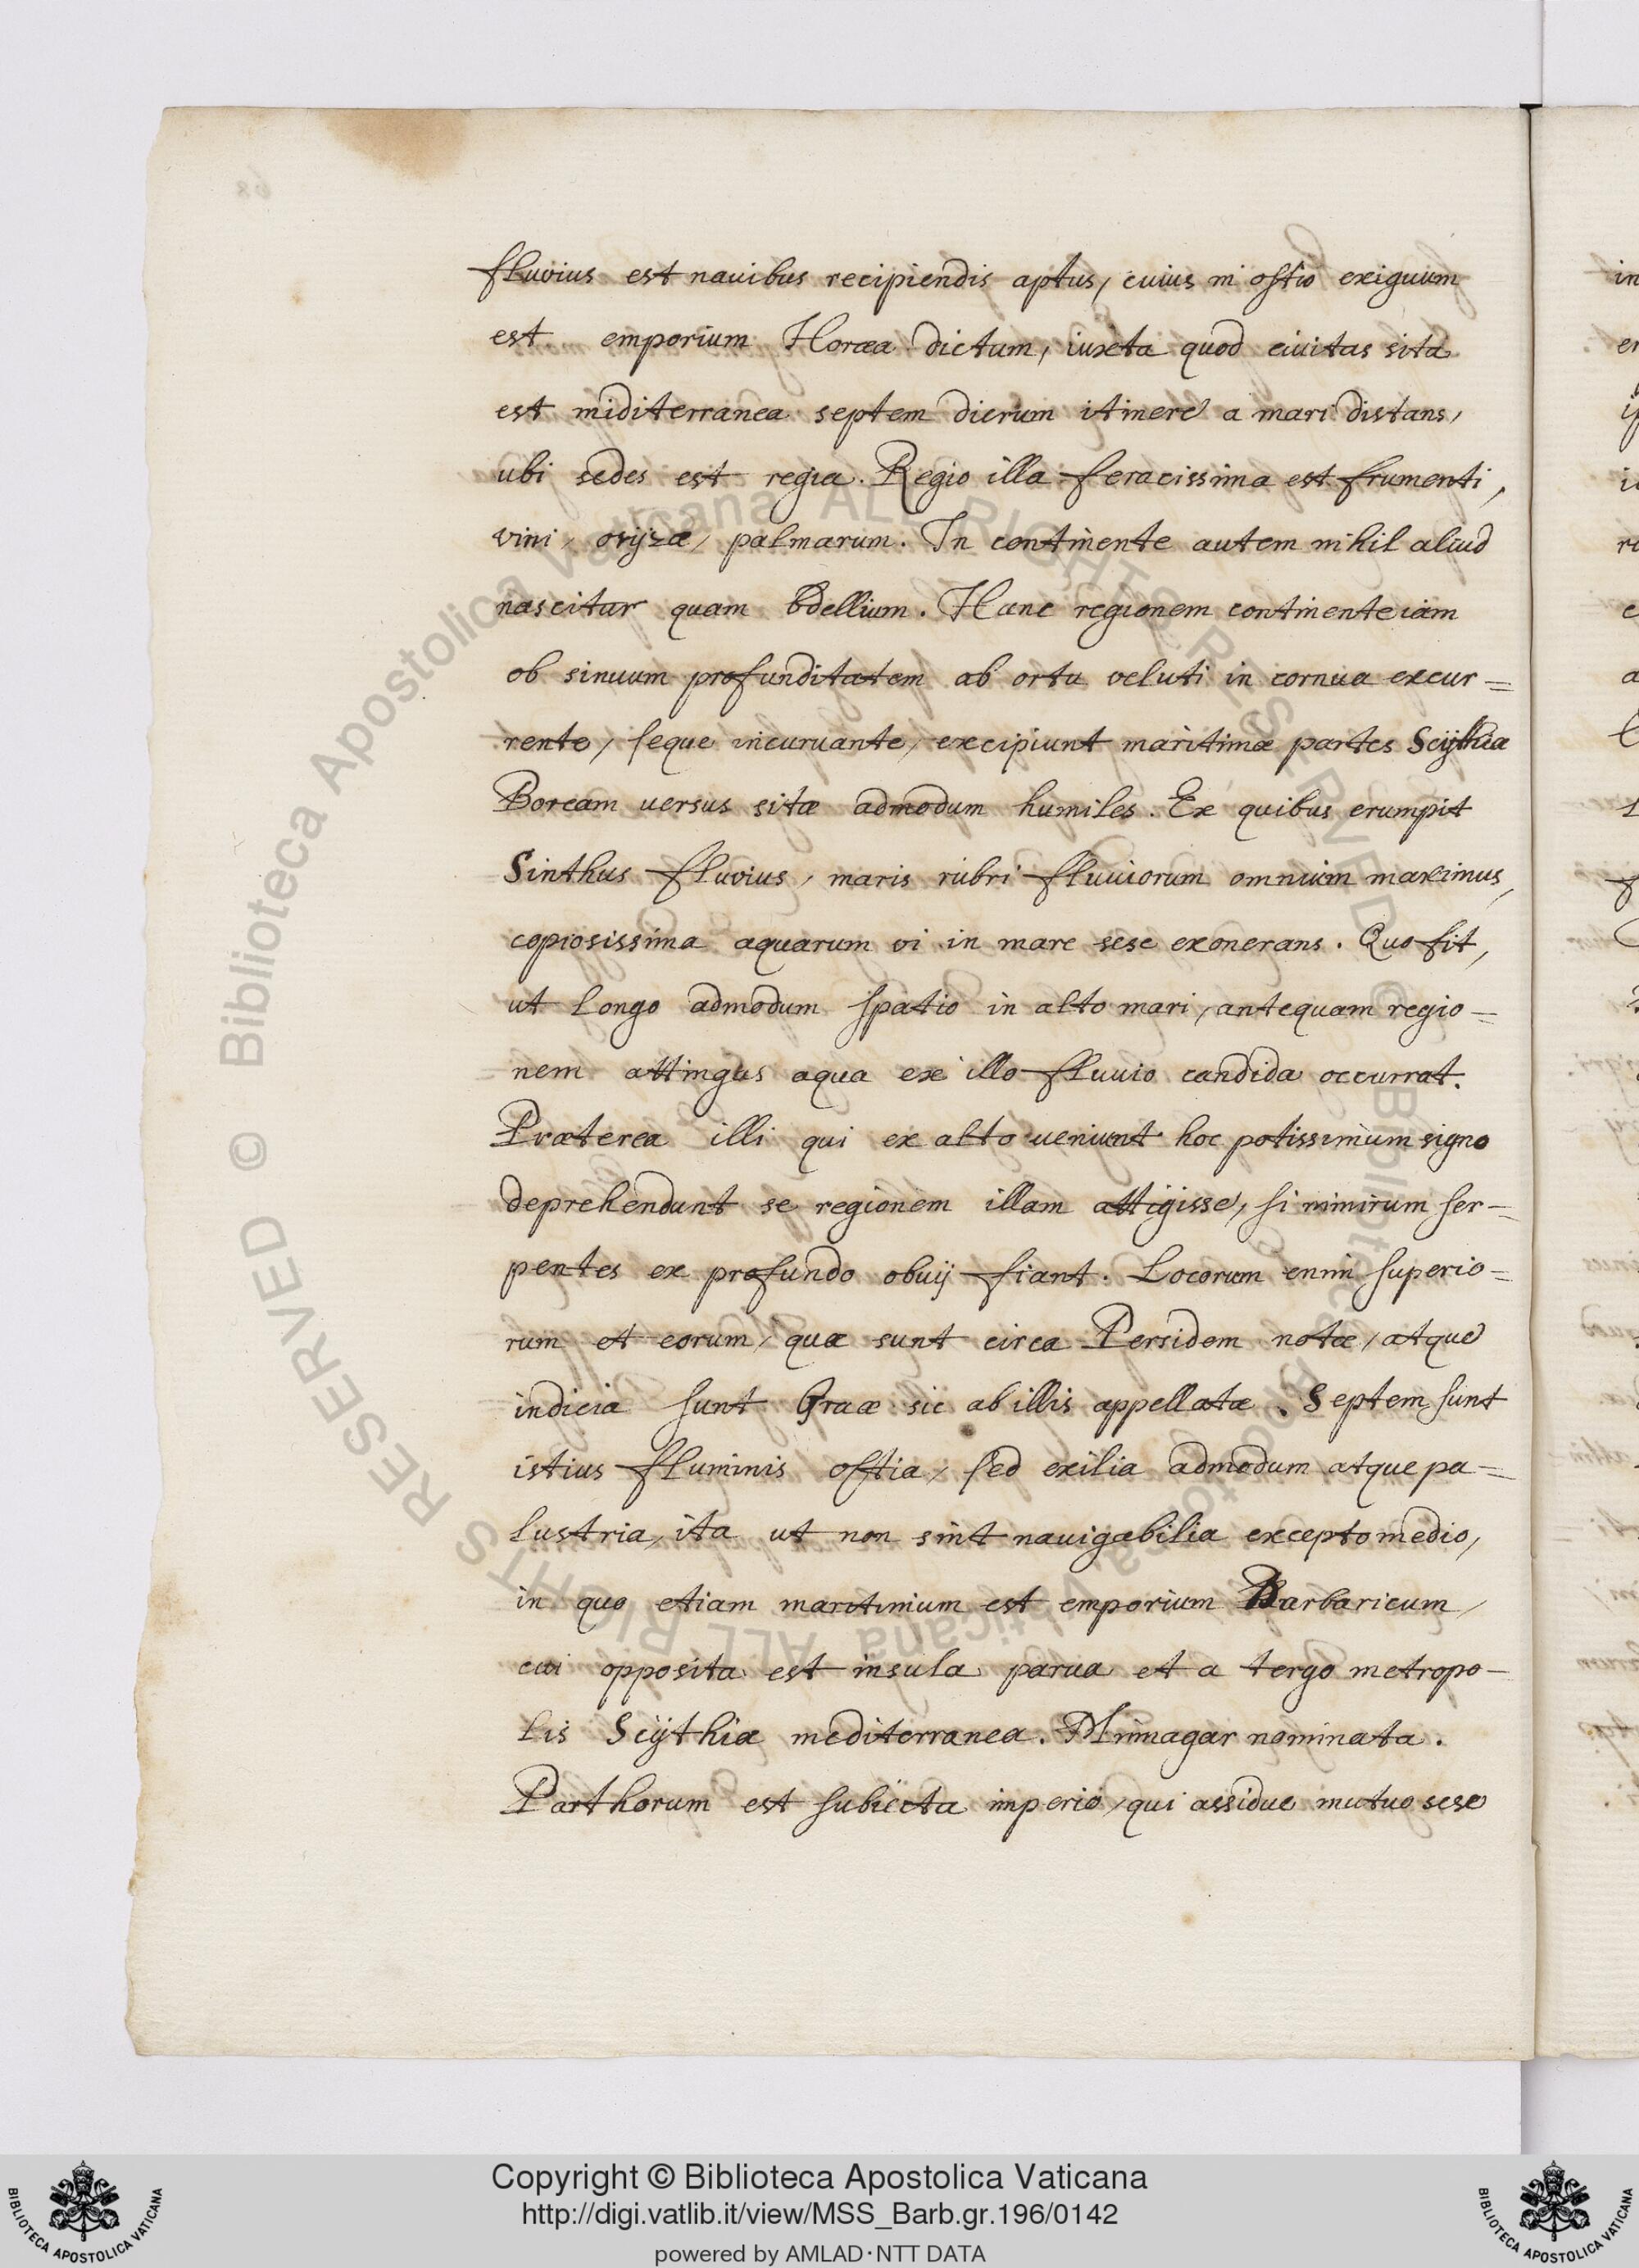 fluvius est nauibus recipiendis aptus, cuius in ostio exiguum
est emporium Horæa dictum, iuxta quod ciuitas sita
est miditerranea septem dierum itinere a mari distans,
ubi sedes est regia. Regio illa feracissima est frumenti,
vini, orÿzæ, palmarum. In continente autem nihil aliud
nascitur quam bdellium. Hanc regionem continente iam
ob sinuum profunditatem ab ortu veluti in cornua excur=
rente, seque incuruante, excipiunt maritimæ partes Scÿthiæ
Boream uersus sitæ admodum humiles. Ex quibus erumpit
Sinthus fluvius, maris rubri fluuiorum omnium maximus,
copiosissima aquarum vi in mare sese exonerans. Quo fit,
ut longo admodum spatio in alto mari, antequam regio=
nem attingas aqua ex illo fluuio candida occurrat.
Præterea illi qui ex alto ueniunt hoc potissimum signo
deprehendunt se regionem illam attigisse, si nimirum ser=
pentes ex profundo obuij fiant. Locorum enim superio=
rum et eorum, quæ sunt circa Persidem notæ, atque
indicia sunt Graæ sic ab illis appellatæ. Septem sunt
istius fluminis ostia, sed exilia admodum atque pa=
lustria, ita ut non sint nauigabilia excepto medio,
in quo etiam maritimum est emporium Barbaricum,
cui opposita est insula parua et a tergo metropo-
lis Scÿthiæ mediterranea. Minnagar nominata.
Parthorum est subiecta imperio, qui assidue mutuo sese
in
Copyright © Biblioteca Apostolica Vaticana
http://digi.vatlib.it/view/MSS_Barb.gr.196/0142
powered by AMLAD·NTT DATA
BIBLIOTECA APOSTOLICA VATICANA
BIBLIOTECA APOSTOLICA VATICANA
© Biblioteca Apostolica Vaticana ALL RIGHTS RESERVED
© Biblioteca Apostolica Vaticana ALL RIGHTS RESERVED